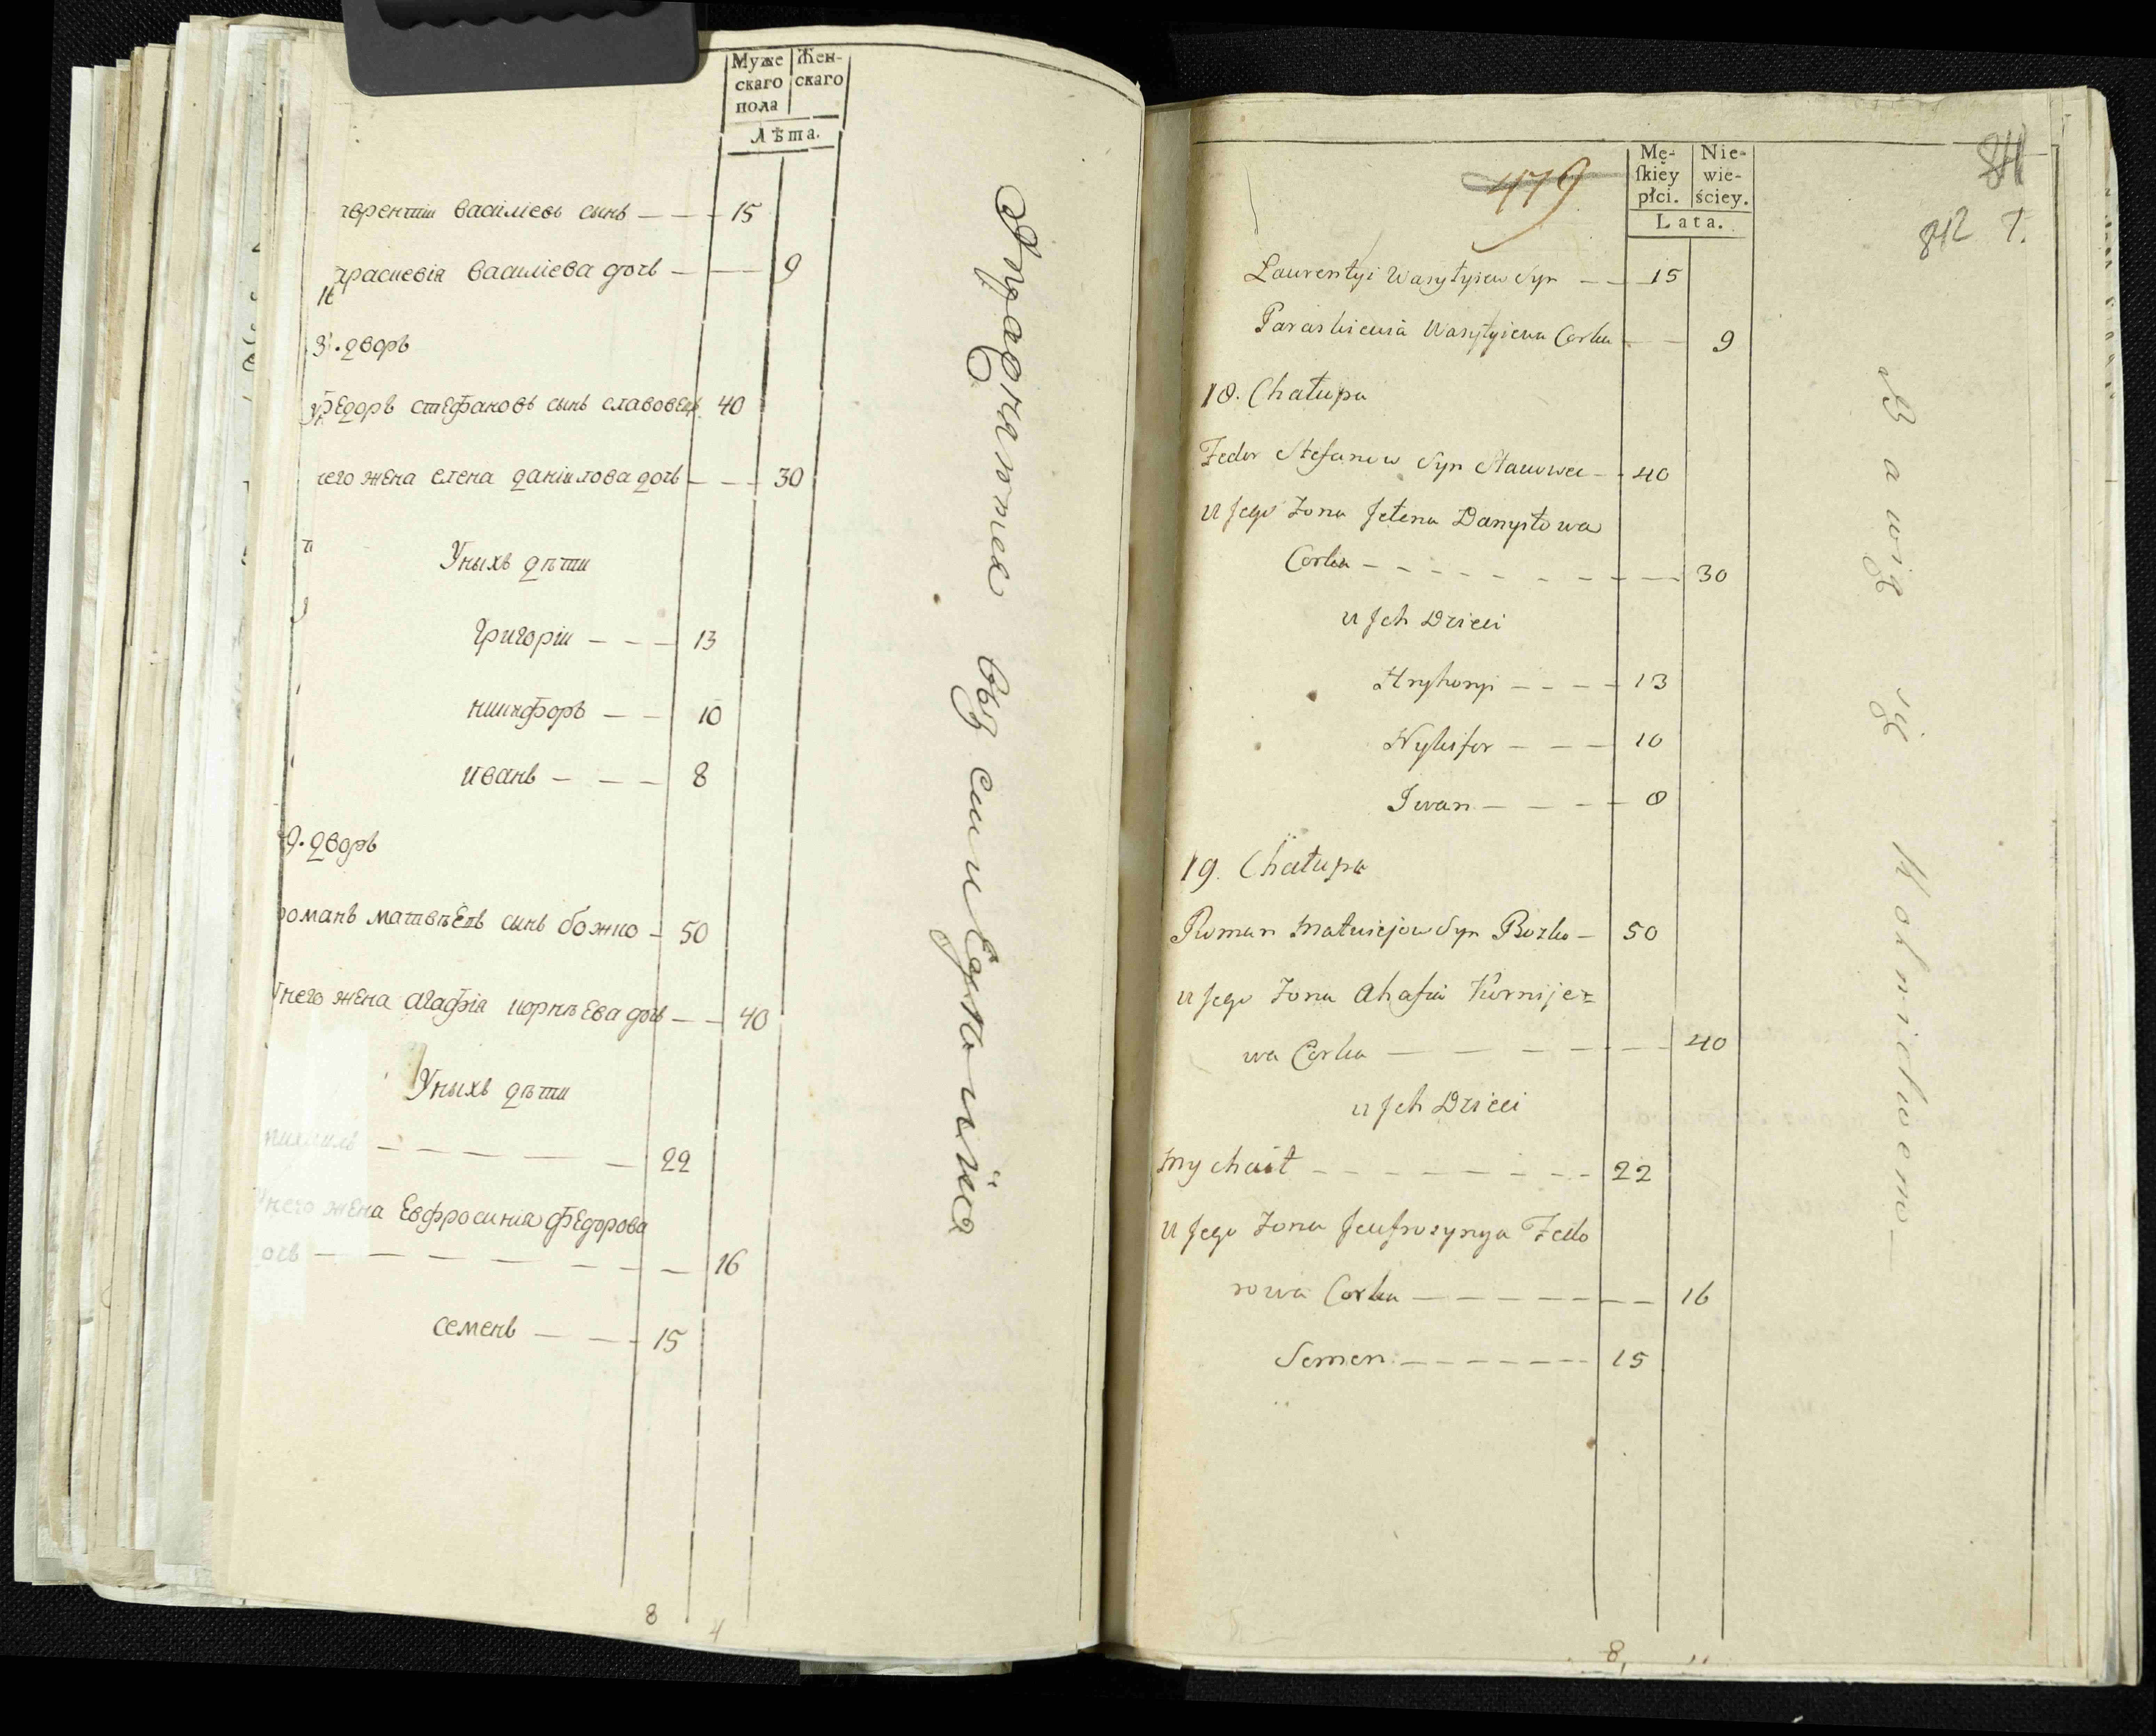 Муже
скаго
пола
Жен-
скаго
Лѣта.
василіевъ сынъ — — — 15
василіева дочь — — — 9
дворъ
Федоръ стефановъ сынъ 40
него жена елена даніилова дочь — — — 30
Уныхъ дѣти
григоріи — — — 13
никифоръ — — 10
иванъ — — — 8
9. дворъ
романъ матвѣевъ сынъ божко — 50
Унего жена агафія корнѣева дочь — — 40
Уныхъ дѣти
михаилъ — — — — — 22
Унего жена Евфросинія Федорова
очь — — — — — — — 16
семенъ — — — 15
8 4
479
Mę-
ſkiey
płci.
Nie-
wie-
ściey.
Lata.
841
842
Laurentyi Wasyłyiew Syn — — 15
Paraskiewia Wasyłyiewa Corka — — 9
18. Chałupa
Fedor Stefanow Syn — 40
u Jego Żona Jełena Danyłowa
Corka — — — — — — — — 30
u Jch Dzieci
Hryhoryi — — — — 13
Nykifor — — — 10
Iwan — — — — 8
19. Chałupa
Roman Matwiejow Syn Bozko — 50
u Jego Żona Ahafia Kornije=
wa Corka — — — — — — 40
u Jch Dzieci
Mychaił — — — — — — — — 22
u Jego Żona Jeufrozynya Fedo
rowa Corka — — — — — — — 16
Semen — — — — — — — 15
8
Bawię się Rolnictwem —